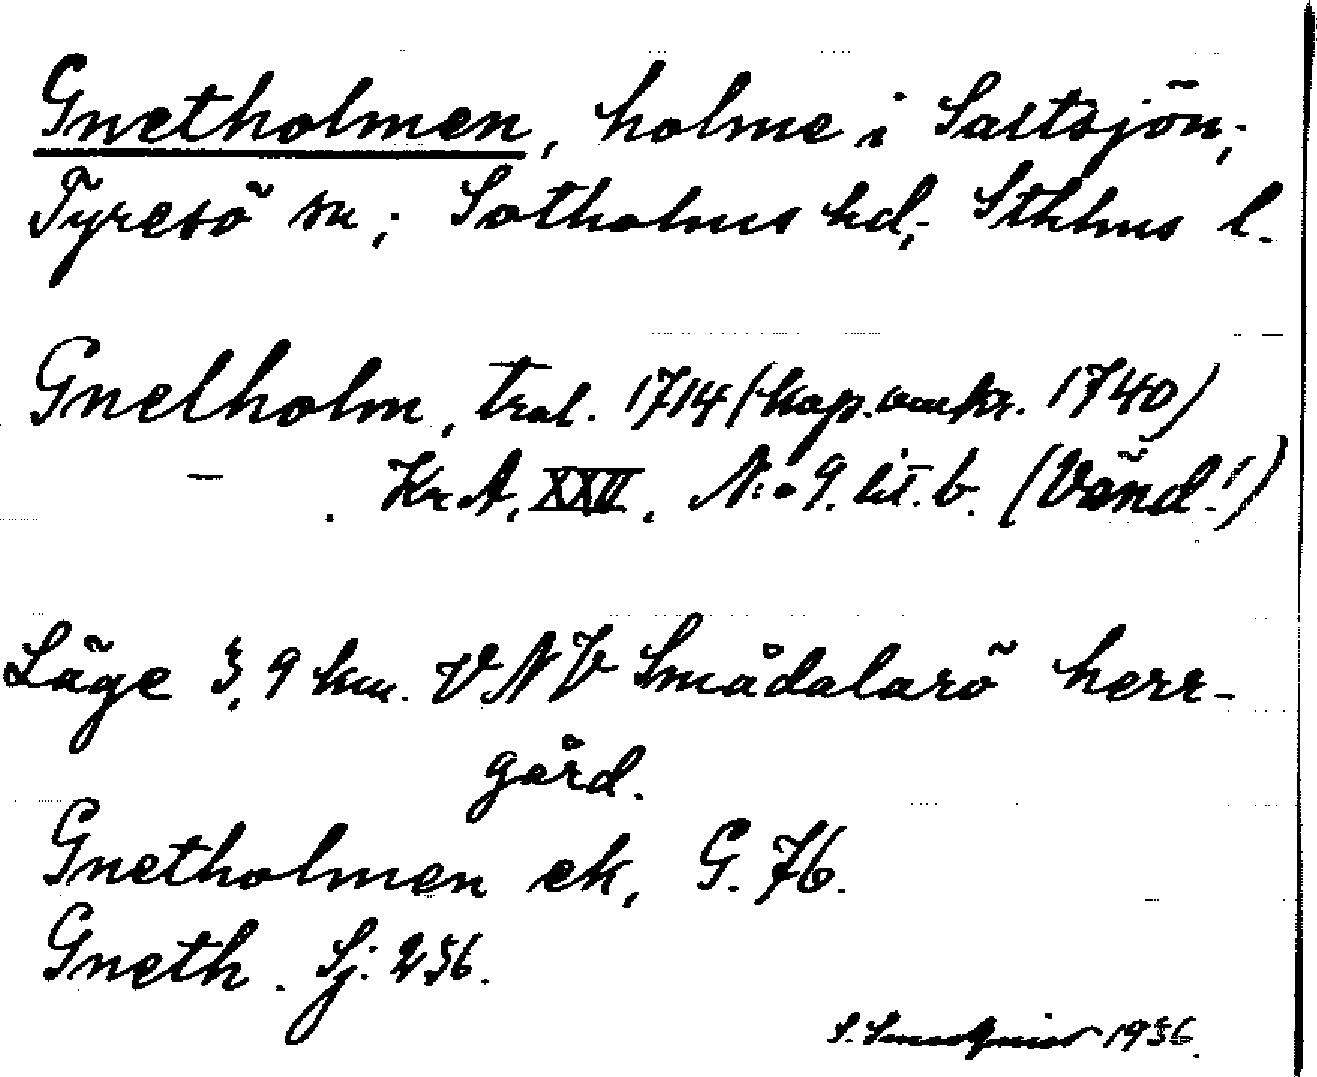 Gnetholmen, holme i Saltsjön;
Tyresö sn; Sotholms hd; Sthlms l.
Gnelholm, tral. 1714 (kop. omkr. 1740)
– . Kr.A. XXV. No 9. lit. b. (Vänd!)
Läge 3,9 km. VNV Smådalarö herr-
gård.
Gnetholmen ek, G. 76.
Gneth. Sj: 256.
1936.